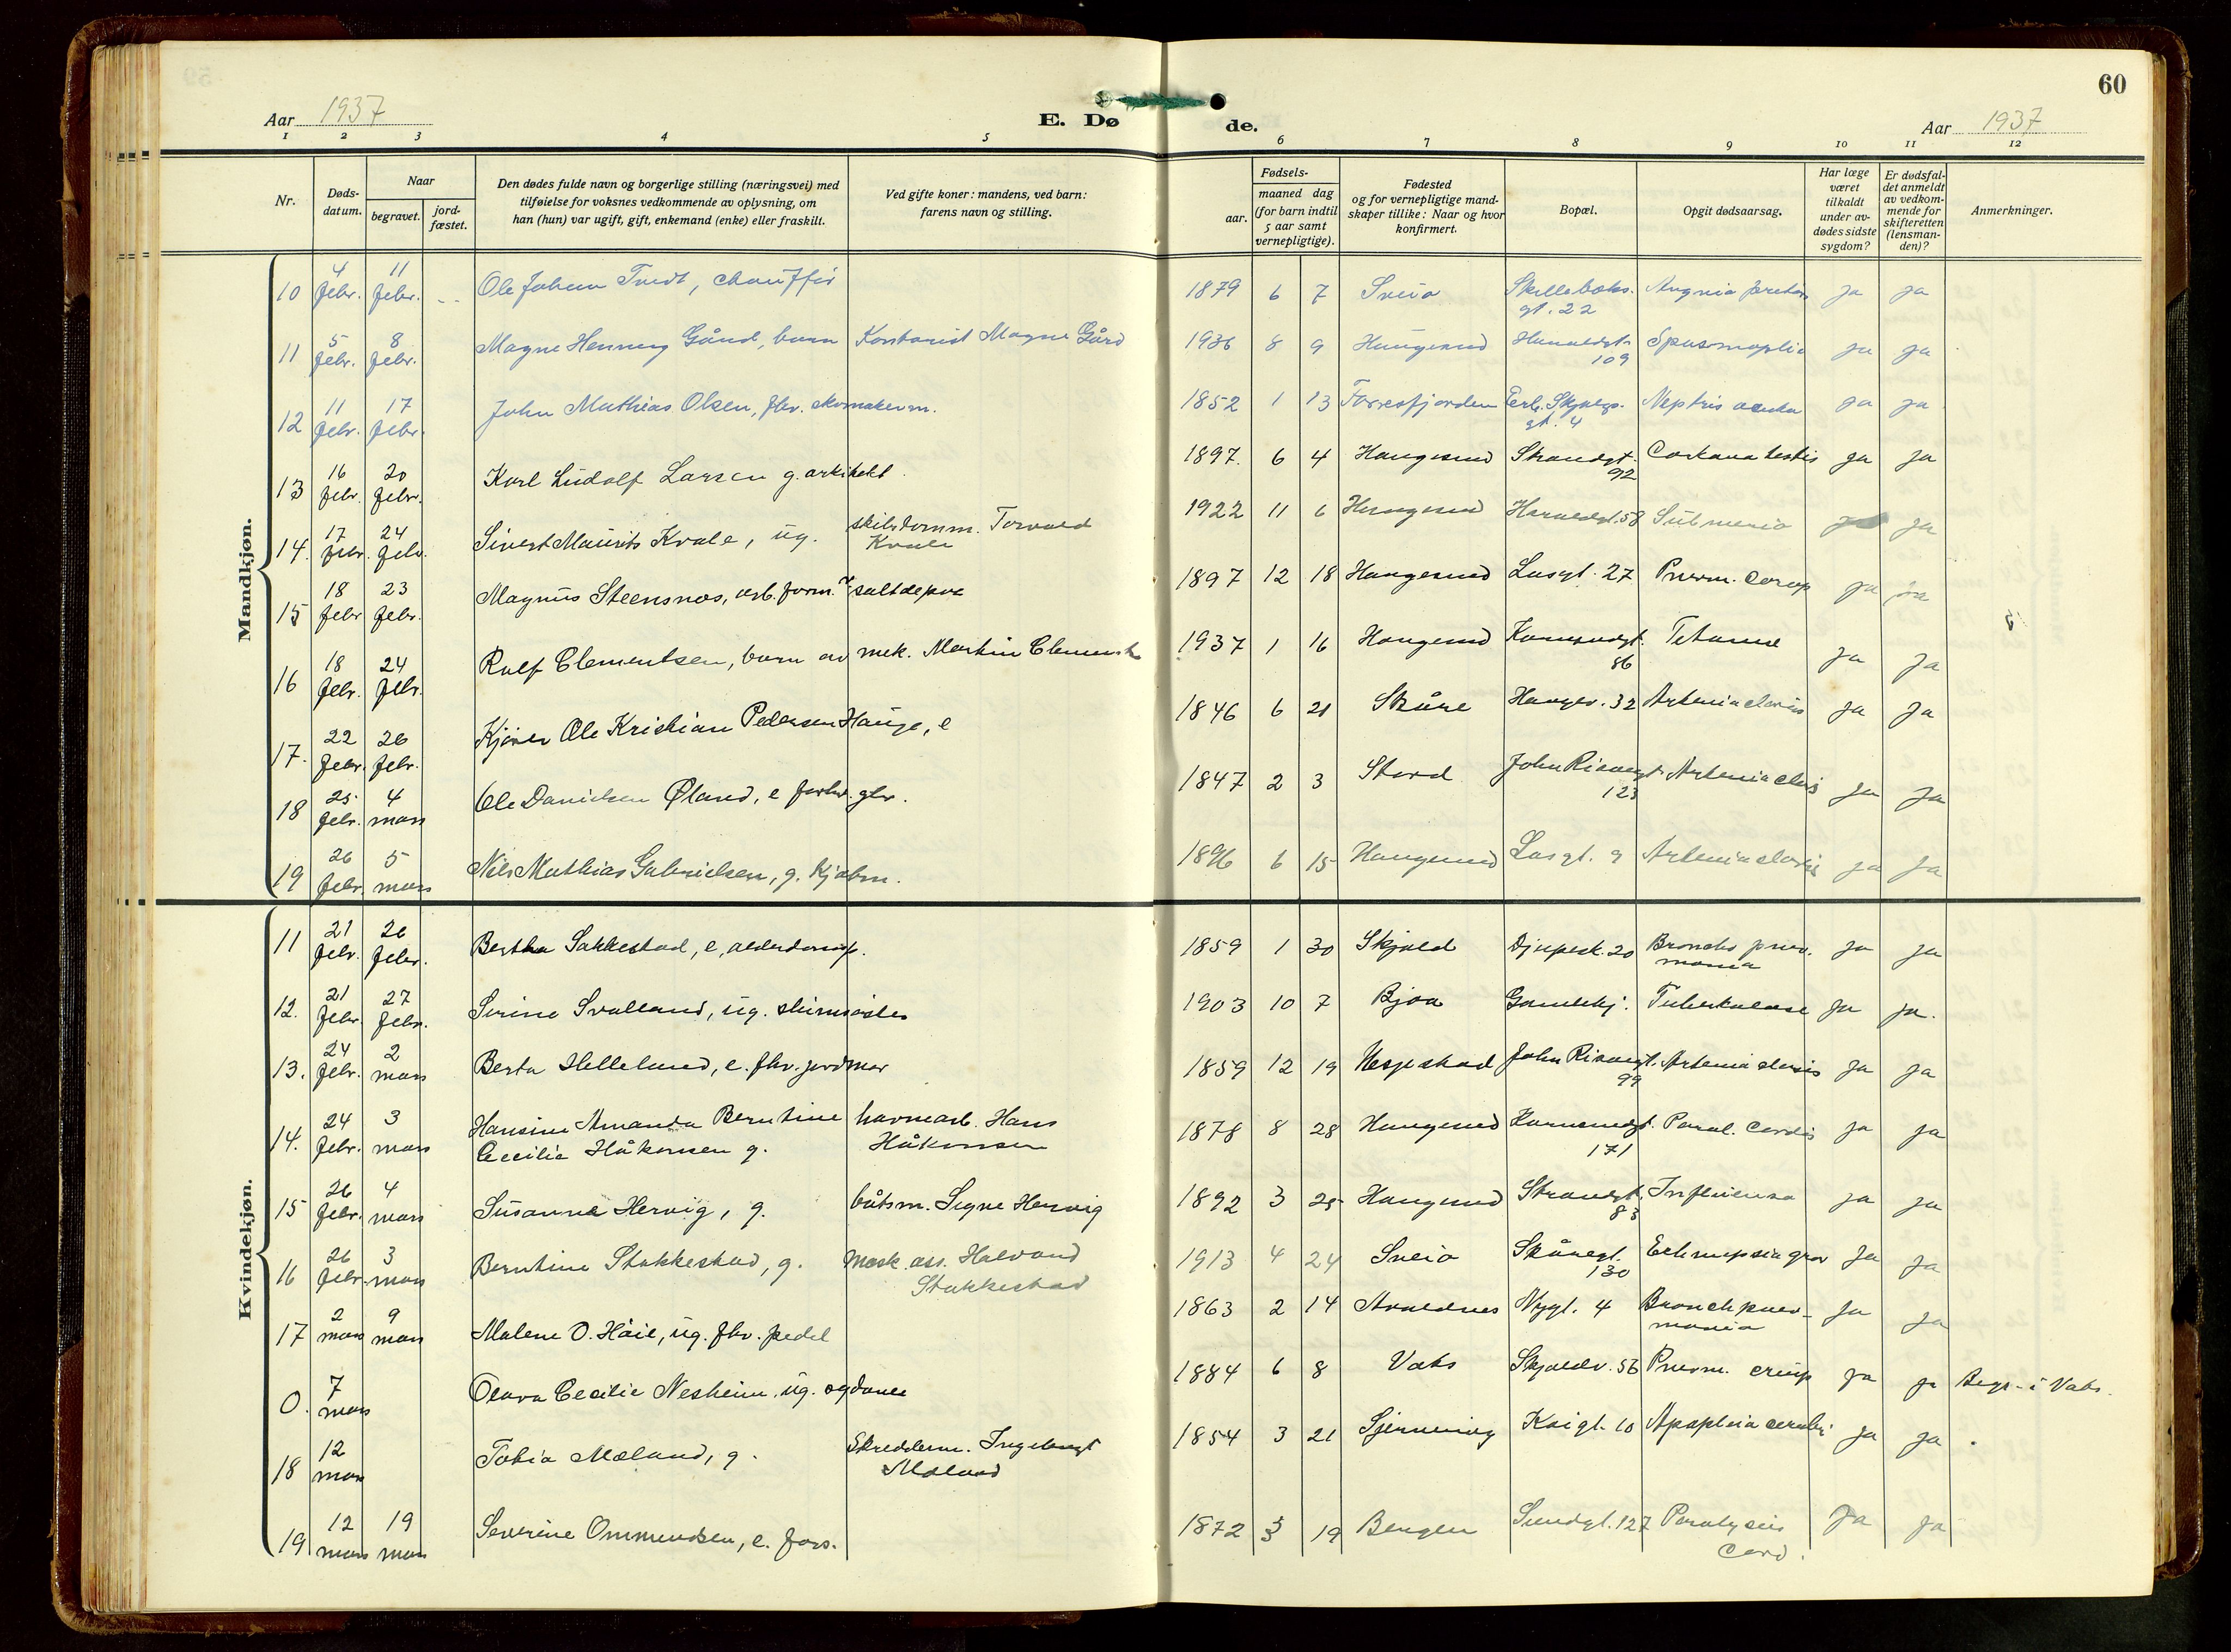 60
Aar 1937
E. Døde.
Aar 1937
1 2 3 4 5 6 7 8 9 10 11 12
Nr.
Døds-datum.
Naar
begravet.
jord-fæstet.
Den dødes fulde navn og borgerlige stilling (næringsvei) med
tilføielse for voksnes vedkommende av oplysning, om
han (hun) var ugift, gift, enkemand (enke) eller fraskilt.
Ved gifte koner: mandens, ved barn:
farens navn og stilling.
Fødsels-
aar.
maaned dag
(for barn indtil
5 aar samt
vernepligtige).
Fødested
og for vernepligtige mand-
skaper tillike: Naar og hvor
konfirmert.
Bopæl.
Opgit dødsaarsag.
Har læge
været
tilkaldt
under av-
dødes sidste
sygdom?
Er dødsfal-
det anmeldt
av vedkom-
mende for
skifteretten
(lensman-
den)?
Anmerkninger.
Mandkjøn.
10 4 febr. 11 febr. Ole Johan Tvedt, chauffør 1879 6 7 Sveio gt. 22 Angina ja ja
11 5 febr. 8 febr. Magne Henning Gård, barn Kontorist Magne Gård 1936 8 9 Haugesund Haraldsgt. 109 ja ja
12 11 febr. 17 febr. John Mathias Olsen, fhv. skomakerm. 1852 1 13 Førresfjorden Erl. Skjalgs. gt. 4 ja ja
13 16 febr. 20 febr. Karl Ludolf Larsen g. arkitekt 1897. 6 4 Haugesund Strandgt. 92 testis ja ja
14. 17 febr. 24 febr. Sivert Maurits Kvale, ug. skibstømm. Torvald Kvale 1922 11 6 Haugesund Haraldsgt. 58 ja ja
15 18 febr. 23 febr. Magnus Steensnæs, arb. form. v saltdepot 1897 12 18 Haugesund 27 Pneum. ja ja
16 18 febr. 24 febr. Rolf Clementsen, barn av mek. Martin Clements 1937 1 16 Haugesund Karmsundgt. 86 Tetanus ja ja
17. 22 febr. 26 febr. Ole Kristian Pedersen Hauge, e 1846 6 21 Skåre Haugev. 32 ja ja
18 25 febr. 4 mars Ole Danielsen Øland, e 1847 2 3 Stord 123 ja ja
19 26 febr. 5 mars Nils Mathias Gabrielsen, g. kjøbm. 1896 6 15 Haugesund 9 ja ja
Kvindekjøn.
11 21 febr. 26 febr. Bertha Sakkestad, e, 1859 1 30 Skjold Djupesk. 20 Broncho pneumonia ja ja
12. 21 febr. 27 febr. Sirine Svolland, ug. 1903 10 7 Bjoa Tuberkulose ja ja.
13. 24 febr. 2 mars Berta Helleland, e. fhv. jordmor 1859 12 19 99 ja ja
14. 24 febr. 3 mars Hansine Amanda Berntine Cecilie Håkonsen g. havnearb. Hans Håkonsen 1878 8 28 Haugesund Karmsundgt. 171 Paral. cordis ja ja
15 26 febr. 4 mars Susanna Hervig, g. båtsm. Hervig 1892 3 25 Haugesund Strandgt. 83 Influensa ja ja
16 26 febr. 3 mars Berntine Stakkestad, g. mask. ass. Halvard Stakkestad 1913 4 24 Sveio Skåregt. 130 Eclampsia grav ja ja
17 2 mars 9 mars Malene O. Håie, ug. fhv. pedel 1863 2 14 Avaldnes Nygt. 4 Bronchpneumonia ja ja
0. 7 mars Olava Cecilie Nesheim, ug. 1884 6 8 Vats Skjoldv. 56 Pneum. crup ja ja Begr. i Vats.
18 12 mars Tobia Mæland, g. Skredderm. Ingebregt Mæland 1854 3 21 Kaigt. 10 Apoplexia cerebri ja ja
19 12 mars 19 mars Severine Ommundsen, e. fors. 1872 19 Bergen Sundgt. 127 Paralysis Cord. ja ja